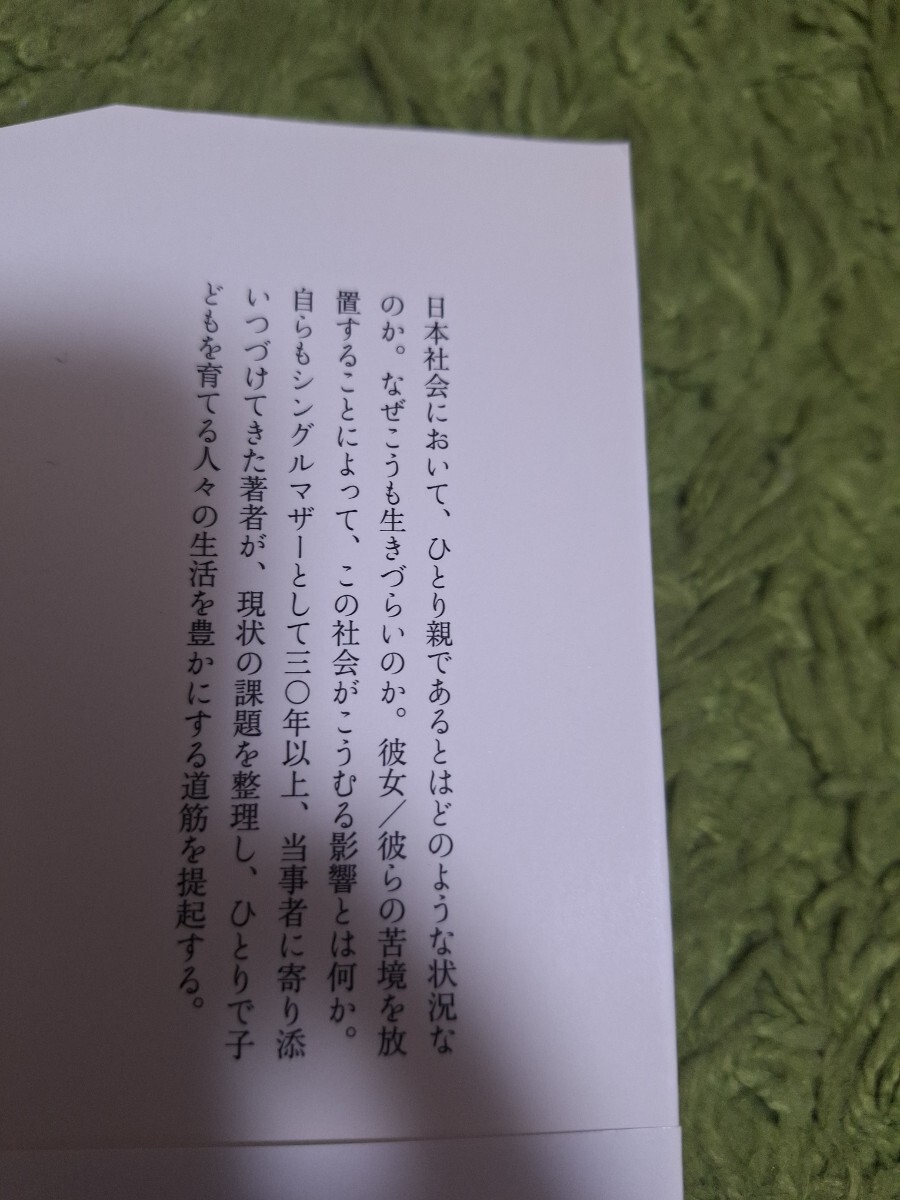 日本社会において、ひとり親であるとはどのような状況な
のか。なぜこうも生きづらいのか。彼女／彼らの苦境を放
置することによって、この社会がこうむる影響とは何か。
自らもシングルマザーとして三〇年以上、当事者に寄り添
いつづけてきた著者が、現状の課題を整理し、ひとりで子
どもを育てる人々の生活を豊かにする道筋を提起する。